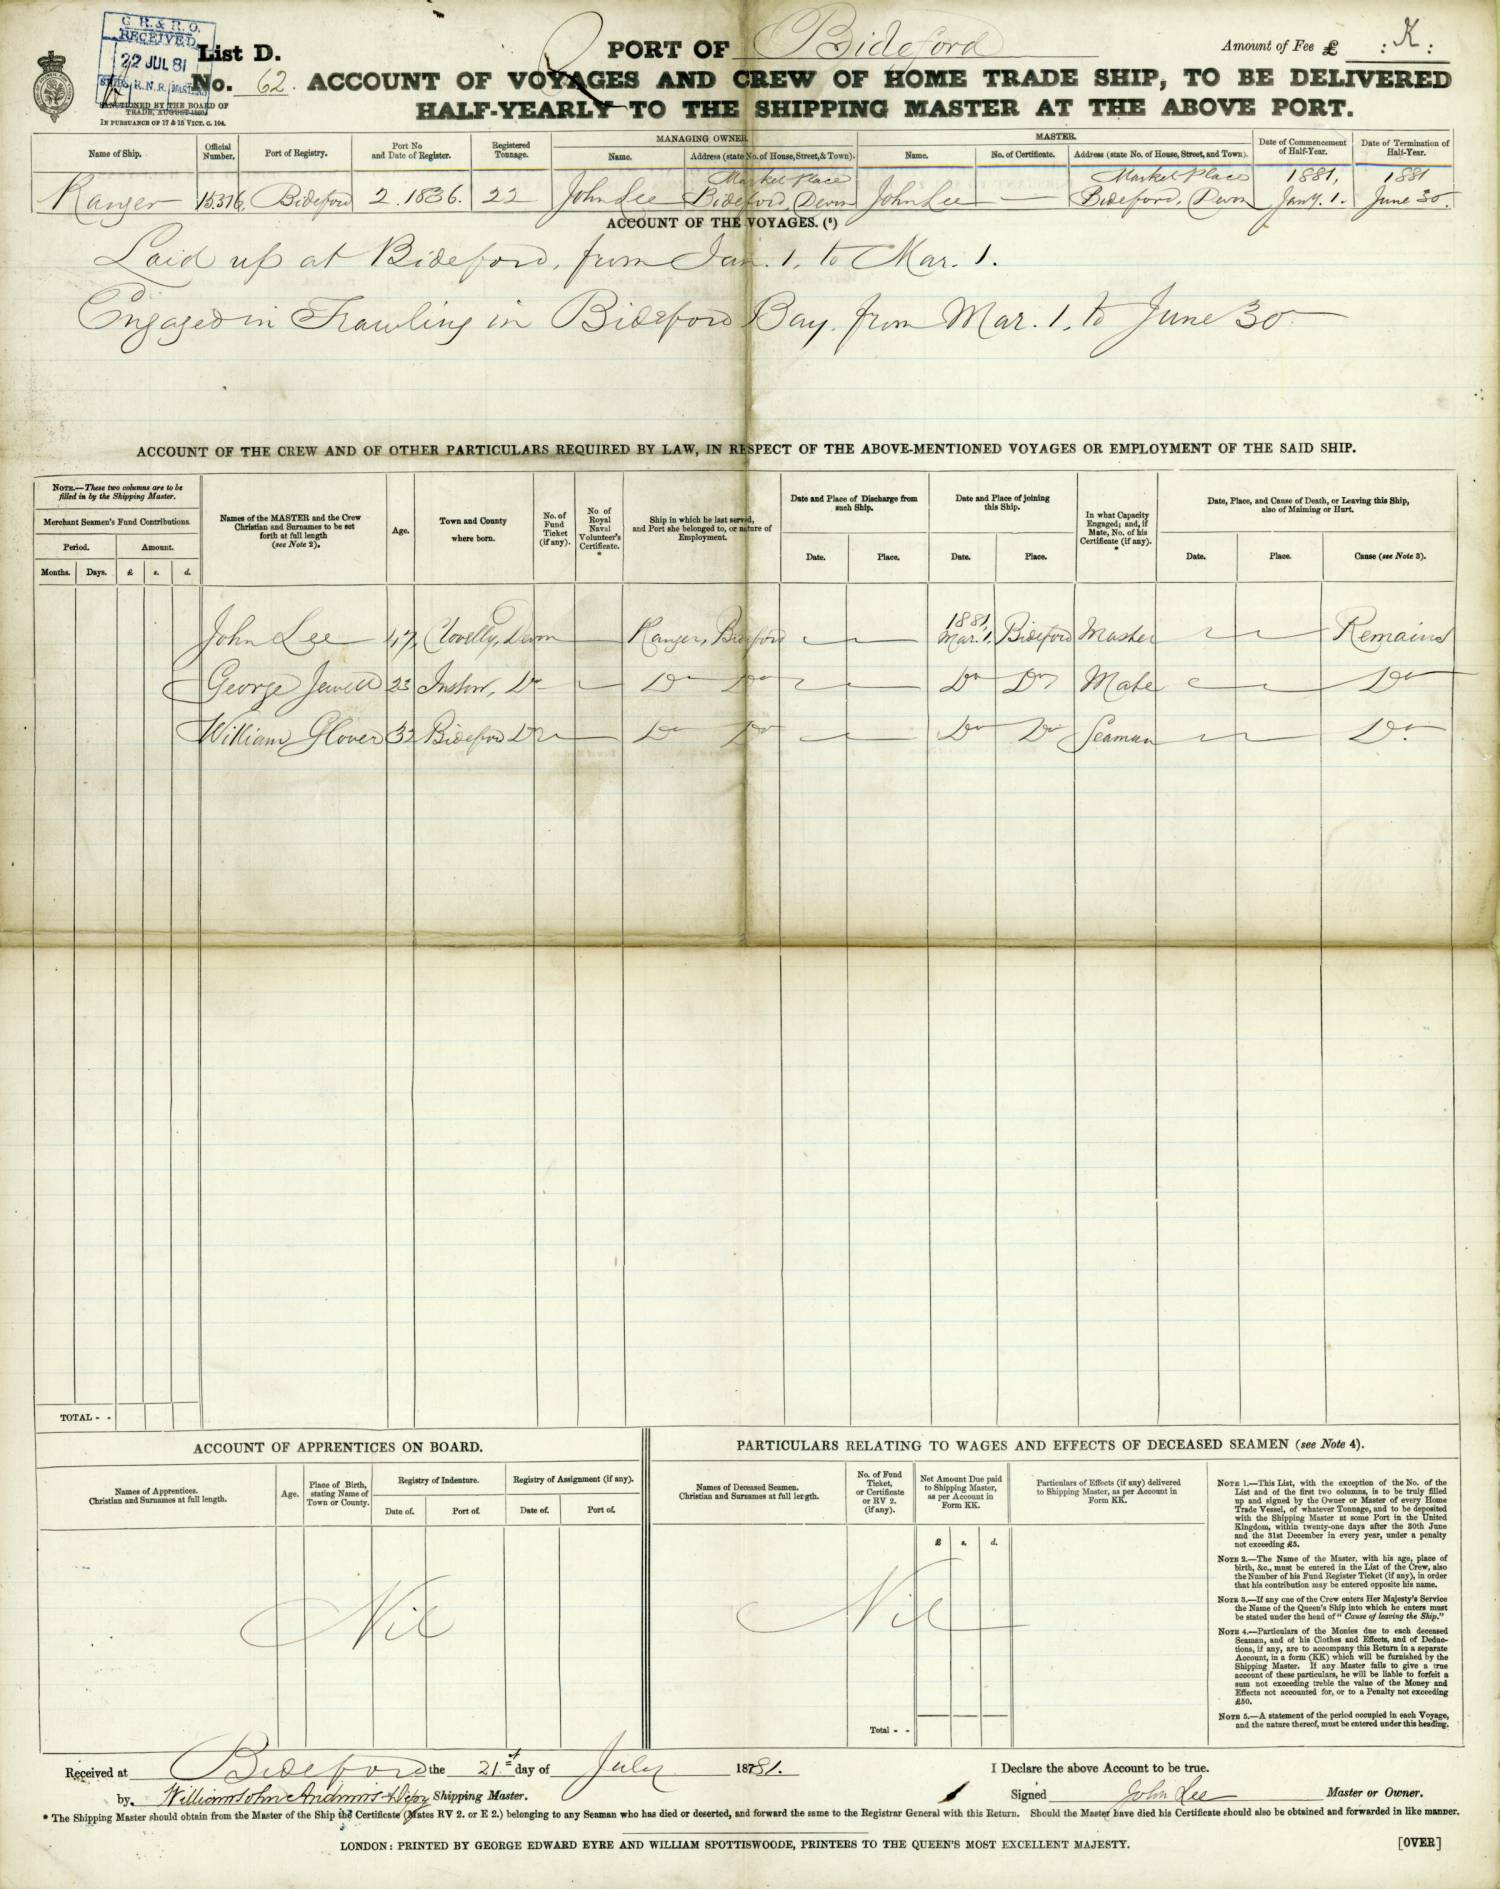 G. R. & R. O.
RECEIVED
22 JUL 81
R.N.R.
List D.
PORT OF Bideford
Amount of Fee £ : K :
No. 62. ACCOUNT OF VOYAGES AND CREW OF HOME TRADE SHIP, TO BE DELIVERED
HALF-YEARLY TO THE SHIPPING MASTER AT THE ABOVE PORT.
SANCTIONED BY THE BOARD OF
TRADE, AUGUST
IN PURSUANCE OF 17 & 18 VICT. C. 104.
MANAGING OWNER. MASTER.
Name of Ship. Official Number. Port of Registry. Port No and Date of Register. Registered Tonnage. Name. Address (state No. of House, Street, & Town). Name. No. of Certificate. Address (state No. of House, Street, and Town). Date of Commencement of Half-Year. Date of Termination of Half-Year.
Market Place Market Place 1881, 1881
Ranger 15.376, Bideford 2. 1836. 22 John Lee Bideford, Devon John Lee — Bideford, Devon Jany. 1. June 30.
ACCOUNT OF THE VOYAGES. (⁵)
Laid up at Bideford, from Jan. 1, to Mar. 1.
Engaged in Trawling in Bideford Bay, from Mar. 1, to June 30.
ACCOUNT OF THE CREW AND OF OTHER PARTICULARS REQUIRED BY LAW, IN RESPECT OF THE ABOVE-MENTIONED VOYAGES OR EMPLOYMENT OF THE SAID SHIP.
NOTE.—These two columns are to be
filled in by the Shipping Master.
Merchant Seamen's Fund Contributions.
Period. Amount.
Months. Days. £ s. d.
Names of the MASTER and the Crew
Christian and Surnames to be set
forth at full length
(see Note 2).
Age.
Town and County
where born.
No. of
Fund
Ticket
(if any).
No. of
Royal
Naval
Volunteer's
Certificate.
*
Ship in which he last served,
and Port she belonged to, or nature of
Employment.
Date and Place of Discharge from
such Ship.
Date. Place.
Date and Place of joining
this Ship.
Date. Place.
In what Capacity
Engaged; and, if
Mate, No. of his
Certificate (if any).
*
Date, Place, and Cause of Death, or Leaving this Ship,
also of Maiming or Hurt.
Date. Place. Cause (see Note 3).
1881
John Lee 47, Clovelly, Devon — Ranger, Bideford — Mar. 1. Bideford Master — Remains
George Jewell 23 Instow, Do — Do Do — Do Do Mate — Do
William Glover 32 Bideford Do — Do Do — Do Do Seaman — Do.
TOTAL - -
ACCOUNT OF APPRENTICES ON BOARD.
Names of Apprentices.
Christian and Surnames at full length.
Age.
Place of Birth,
stating Name of
Town or County.
Registry of Indenture.
Date of. Port of.
Registry of Assignment (if any).
Date of. Port of.
Nil
PARTICULARS RELATING TO WAGES AND EFFECTS OF DECEASED SEAMEN (see Note 4).
Names of Deceased Seamen.
Christian and Surnames at full length.
No. of Fund
Ticket,
or Certificate
or RV 2.
(if any).
Net Amount Due paid
to Shipping Master,
as per Account in
Form KK.
£ s. d.
Particulars of Effects (if any) delivered
to Shipping Master, as per Account in
Form KK.
Nil
Total - -
NOTE 1.—This List, with the exception of the No. of the
List and of the first two columns, is to be truly filled
up and signed by the Owner or Master of every Home
Trade Vessel, of whatever Tonnage, and to be deposited
with the Shipping Master at some Port in the United
Kingdom, within twenty-one days after the 30th June
and the 31st December in every year, under a penalty
not exceeding £5.
NOTE 2.—The Name of the Master, with his age, place of
birth, &c., must be entered in the List of the Crew, also
the Number of his Fund Register Ticket (if any), in order
that his contribution may be entered opposite his name.
NOTE 3.—If any one of the Crew enters Her Majesty's Service
the Name of the Queen's Ship into which he enters must
be stated under the head of "Cause of leaving the Ship."
NOTE 4.—Particulars of the Monies due to each deceased
Seaman, and of his Clothes and Effects, and of Deduc-
tions, if any, are to accompany this Return in a separate
Account, in a form (KK) which will be furnished by the
Shipping Master. If any Master fails to give a true
account of these particulars, he will be liable to forfeit a
sum not exceeding treble the value of the Money and
Effects not accounted for, or to a Penalty not exceeding
£50.
NOTE 5.—A statement of the period occupied in each Voyage,
and the nature thereof, must be entered under this heading.
Received at Bideford the 21st day of July 1881. I Declare the above Account to be true.
by William John Shipping Master. Signed John Lee Master or Owner.
* The Shipping Master should obtain from the Master of the Ship the Certificate (Mates RV 2. or E 2.) belonging to any Seaman who has died or deserted, and forward the same to the Registrar General with this Return. Should the Master have died his Certificate should also be obtained and forwarded in like manner.
LONDON: PRINTED BY GEORGE EDWARD EYRE AND WILLIAM SPOTTISWOODE, PRINTERS TO THE QUEEN'S MOST EXCELLENT MAJESTY.
[OVER]